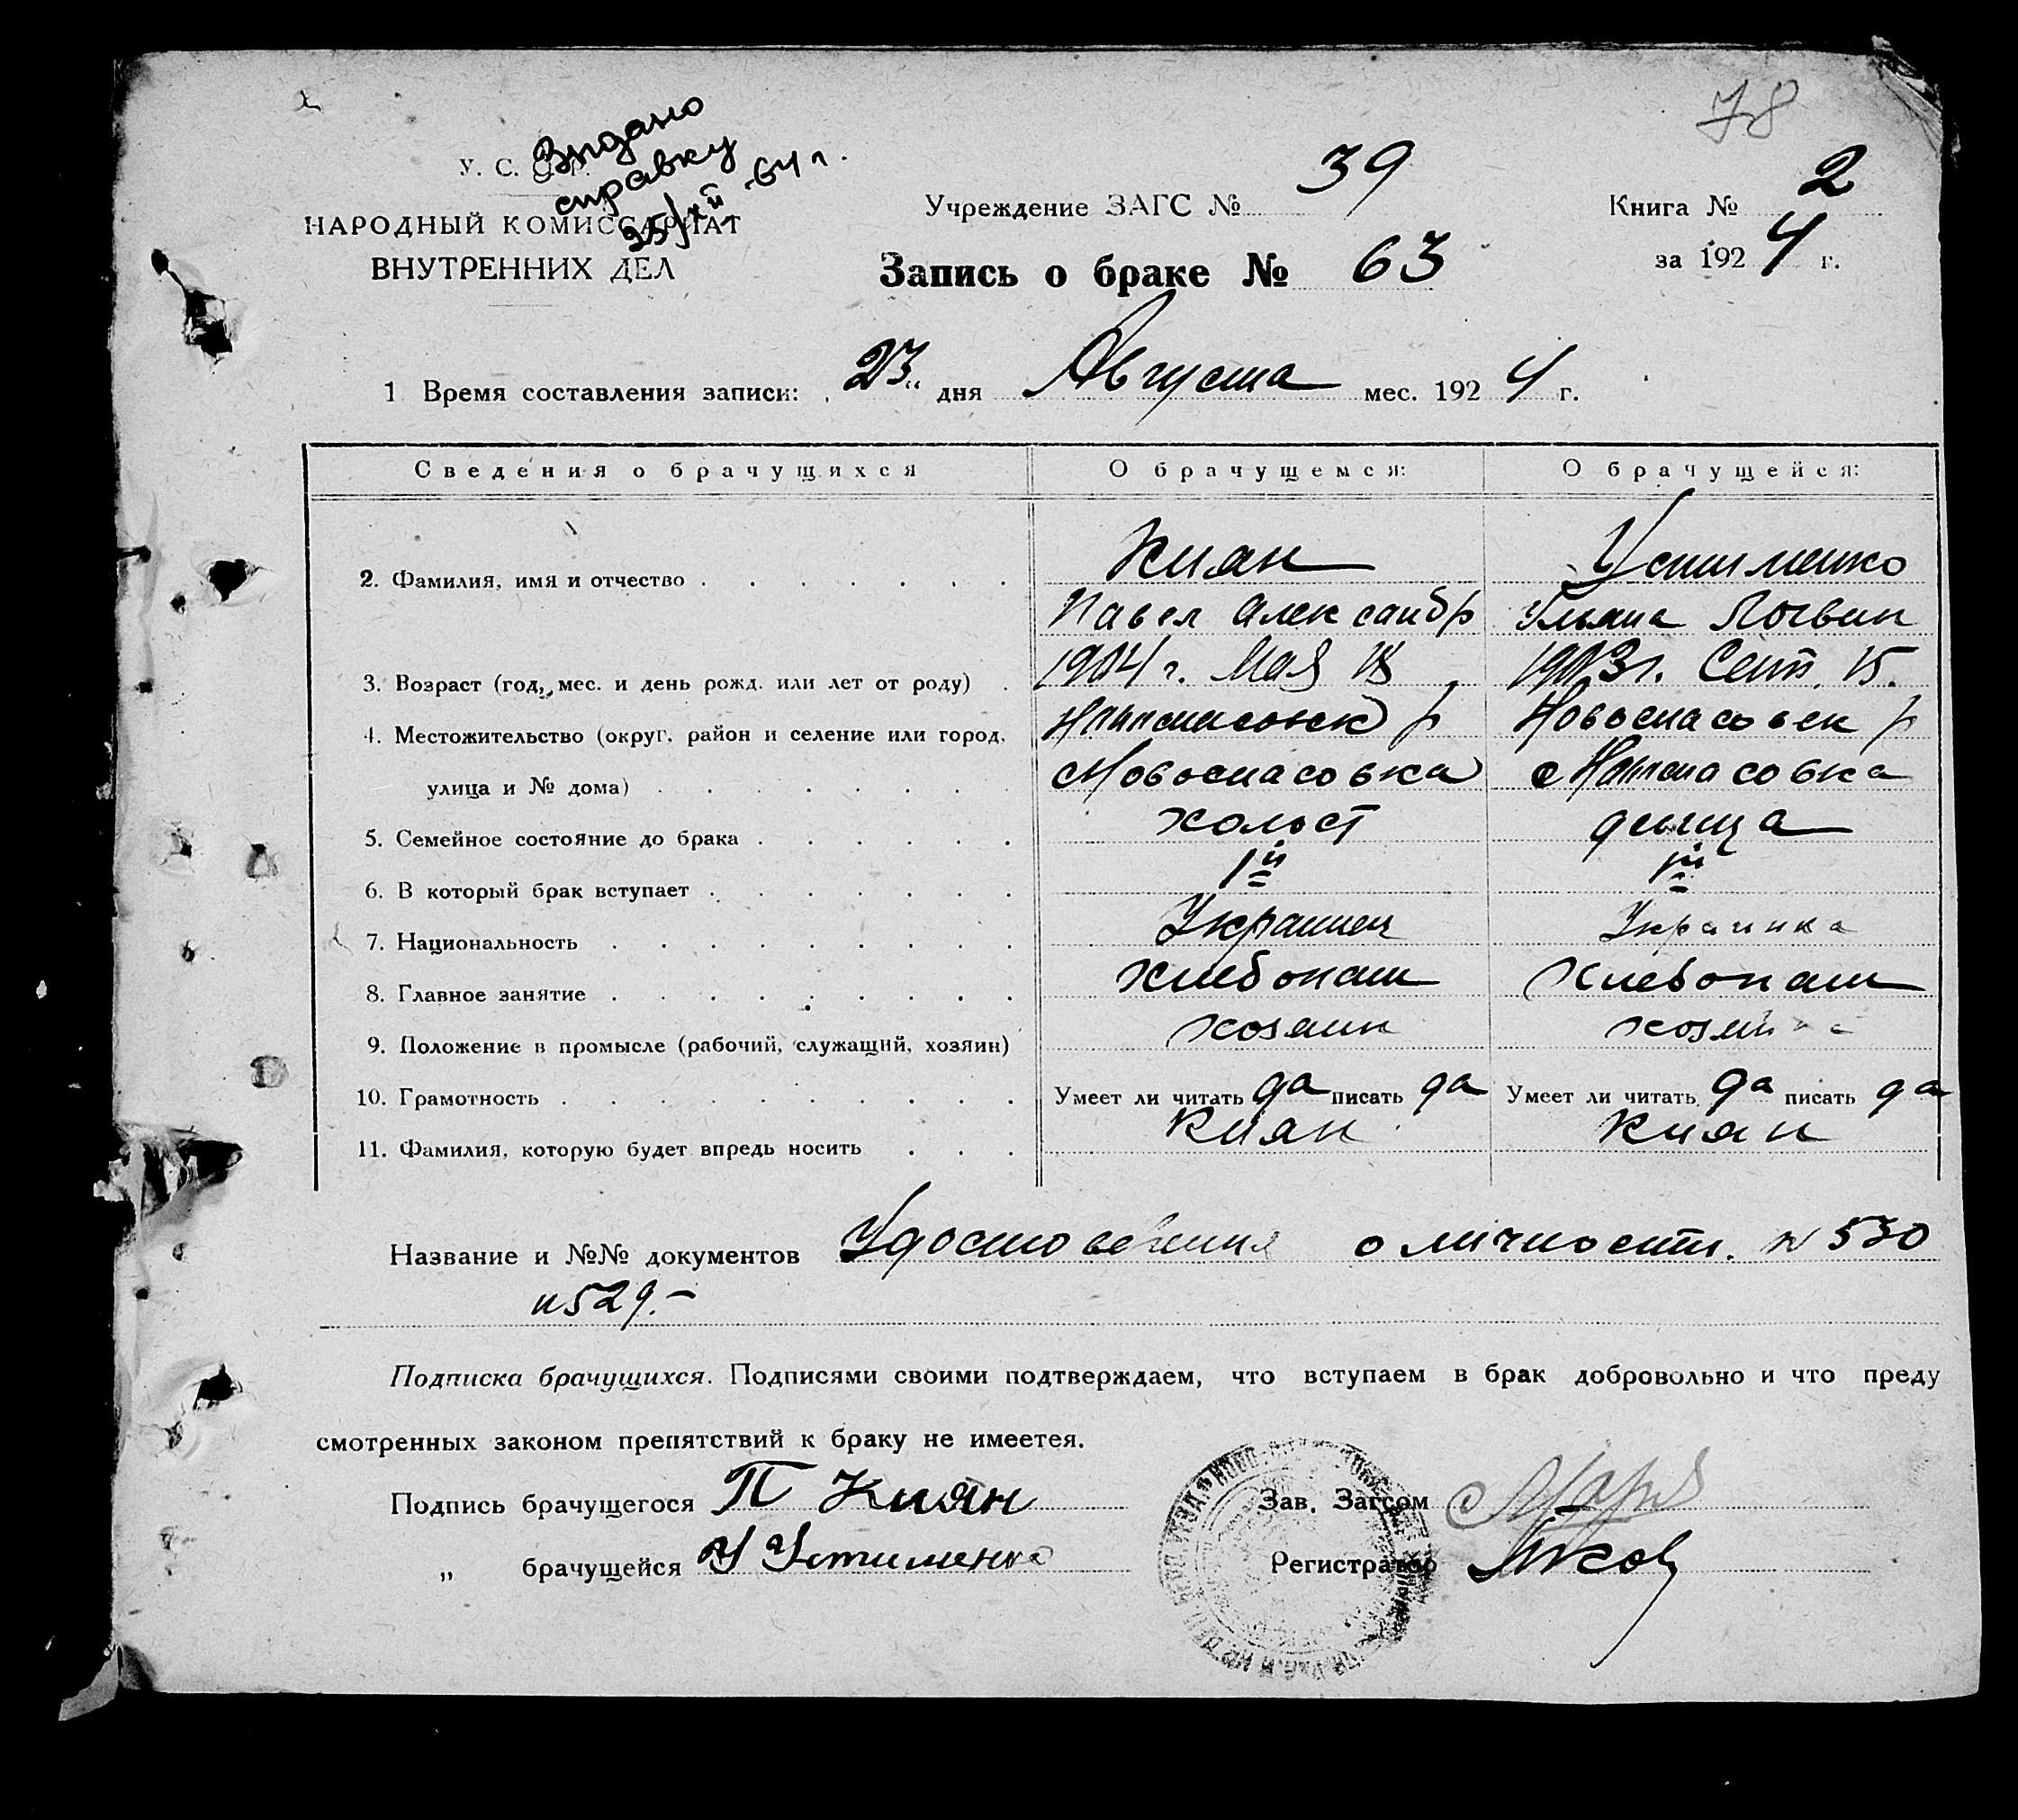 78
Видано
справку
25/XII-64 г.
У. С. С. Р.
НАРОДНЫЙ КОМИССАРИАТ
ВНУТРЕННИХ ДЕЛ
Учреждение ЗАГС № 39
Книга № 2
за 1924 г.
Запись о браке № 63
1 Время составления записи: 23 " дня Августа мес. 1924 г.
Сведения о брачущихся О брачущемся: О брачущейся:
2. Фамилия, имя и отчество Киян Устименко
Павел Александр Ульяна Логвин
3. Возраст (год, мес. и день рожд. или лет от роду) 1904 г. Мая 18 1903 г. Сент. 15.
4. Местожительство (округ, район и селение или город, Новоспасовск р Новоспасовск р
улица и № дома) с Новоспасовка с Новоспасовка
5. Семейное состояние до брака холост девица
6. В который брак вступает 1й 1й
7. Национальность Украинец Украинка
8. Главное занятие хлебопаш хлебопаш
9. Положение в промысле (рабочий, служащий, хозяин) хозяин хозяйка
10. Грамотность Умеет ли читать да писать да Умеет ли читать да писать да
11. Фамилия, которую будет впредь носить Киян Киян
Название и №№ документов Удостоверения о личности. № 530
и 529.-
Подписка брачущихся. Подписями своими подтверждаем, что вступаем в брак добровольно и что преду
смотренных законом препятствий к браку не имеетея.
Подпись брачущегося П Киян
Зав. Загсом
„ брачущейся У Устименко
Регистратор